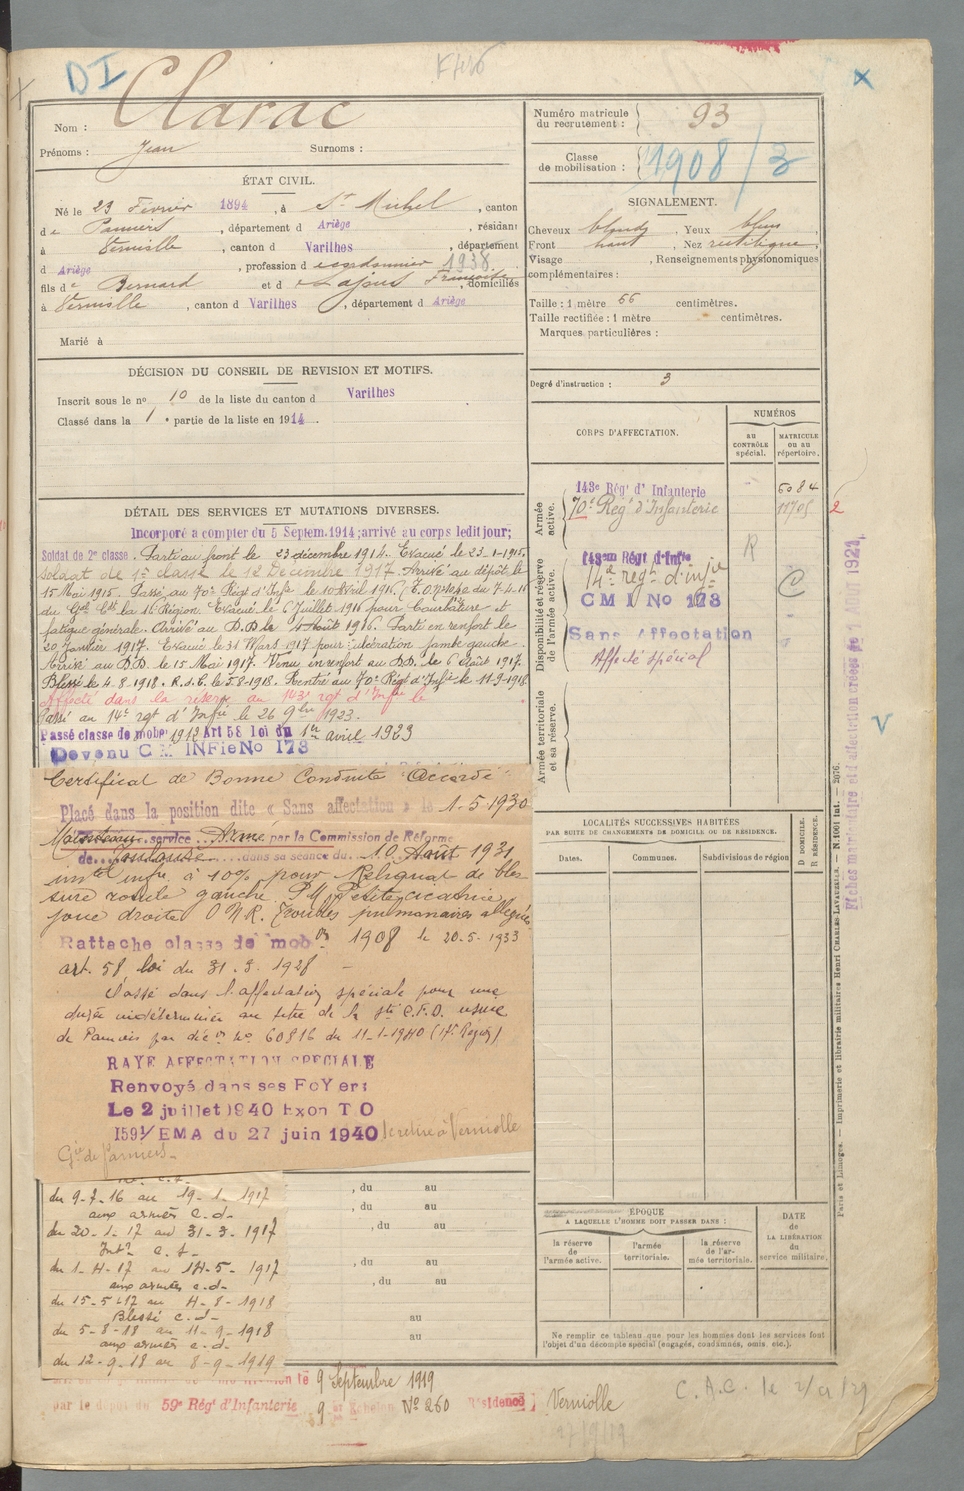 DI
Nom : Clarac
Prénoms : Jean Surnoms :
ÉTAT CIVIL.
Né le 23 Février 1894, à St Michel, canton
de Pamiers, département d Ariège, résidant
à Verniolle, canton d Varilhes, département
d Ariège, profession d cordonnier 1938.
fils de Bernard et d Françoise, domiciliés
à Verniolle, canton d Varilhes, département d Ariège
Marié à
DÉCISION DU CONSEIL DE REVISION ET MOTIFS.
Inscrit sous le no 10 de la liste du canton d Varilhes
Classé dans la 1e partie de la liste en 1914.
DÉTAIL DES SERVICES ET MUTATIONS DIVERSES.
Incorporé a compter du 5 Septem. 1914; arrivé au corps ledit jour;
Soldat de 2e classe. Parti au front le 23 décembre 1914. Evacué le 23-1-1915.
Soldat de 1e classe le 12 Décembre 1917. Arrivé au dépôt le
15 Mai 1915. Passé au 70e Régt d'Infie le 10 Avril 1916
la 16e Région Evacué le 6 Juillet 1916 pour Courbature et
fatigue générale. Arrivé au D.D. le 4 Août 1916. Parti en renfort le
20 Janvier 1917. Evacué le 31 Mars 1917 pour ulcération jambe gauche.
Arrivé au D.D. le 15 Mai 1917. Venu en renfort au D.D. le 6 Août 1917.
Blessé le 4-8-1918. R.d.C. le 5-8-1918. Rentré au 70e Régt d'Infie le 11-9-1918
Affecté dans la réserve au 143e rgt d'Infie le
Passé au 14e rgt d'Infie le 26 9bre 1923.
Passé classe de mobon 1912 Art 58 loi du 1er avril 1923
Devenu C M INFie No 173
Certificat de Bonne Conduite "Accordé"
Placé dans la position dite « Sans affectation » le 1-5-1930
Maintenu service Armé par la Commission de Réforme
de Toulouse dans sa séance du 10 Août 1931
à 10% pour Reliquat de bles
sure rotule gauche. Petite cicatrice
joue droite Troubles pulmonaires allégués
Rattaché classe de mobon 1908 le 20-5-1933
art. 58 loi du 31-3-1928
Classé dans l'affectation spéciale pour une
durée indéterminée au titre de la usine
de Pamiers par décon no 60816 du 11-1-1940 (17e Région)
RAYE AFFECTATION SPECIALE
Renvoyé dans ses FoYers
Le 2 juillet 1940 Exon T O
1591/EMA du 27 juin 1940 se retire à Verniolle
Gie de Pamiers
du 9-7-16 au 19-1-1917
aux armées c.d-
du 20-1-17 au 31-3-1917
Intr c.s-
du 1-4-17 au 14-5-1917
aux armées c.d-
du 15-5-17 au 4-8-1918
Blessé c.d-
du 5-8-18 au 11-9-1918
aux armées c.d-
du 12-9-18 au 8-9-1919
, du au
, du au
, du au
, du au
, du au
au
au
le 9 Septembre 1919
par le dépôt du 59e Régt d'Infanterie 9e Echelon No 260 Résidence] Verniolle
Numéro matricule
du recrutement : 93
Classe
de mobilisation : 1908/3
SIGNALEMENT.
Cheveux blonds, Yeux bleus
Front haut, Nez rectiligne,
Visage , Renseignements physionomiques
complémentaires :
Taille : 1 mètre 66 centimètres.
Taille rectifiée : 1 mètre centimètres.
Marques particulières :
Degré d'instruction : 3
CORPS D'AFFECTATION.
NUMÉROS
au
CONTRÔLE
spécial.
MATRICULE
ou au
répertoire.
Armée
active.
143e Régt d'Infanterie 6084
70e Régt d'Infanterie 11705 2
Disponibilité et réserve
de l'armée active.
143eme Régt d'Infie R
14e regt d'infie C
C M I No 173
Sans Affectation
Affecté spécial
Armée territoriale
et sa réserve.
LOCALITÉS SUCCESSIVES HABITÉES
PAR SUITE DE CHANGEMENTS DE DOMICILE OU DE RÉSIDENCE.
Dates.
Communes.
Subdivisions de région
D DOMICILE.
R RÉSIDENCE.
ÉPOQUE
A LAQUELLE L'HOMME DOIT PASSER DANS :
la réserve
de
l'armée active.
l'armée
territoriale.
la réserve
de l'ar-
mée territoriale.
DATE
de
LA LIBÉRATION
du
service militaire.
Ne remplir ce tableau que pour les hommes dont les services font
l'objet d'un décompte spécial (engagés, condamnés, omis, etc.).
Paris et Limoges. — Imprimerie et librairie militaires Henri CHARLES-LAVAUZELLE. — N. 1001 int. — 2976.